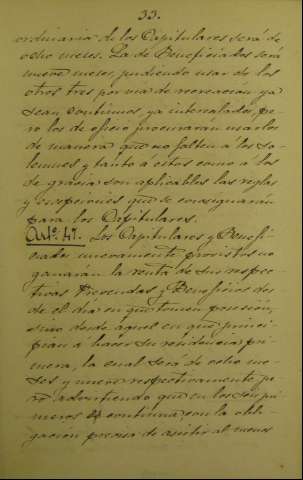 33.
ordinaria de los Capitulares será de
ocho meses. La de Beneficiados será
nueve meses, pudiendo usar de los
otros tres por via de recreacion ya
sean continuos, ya intercalados, pe-
ro los de oficio procuraran usarlos
de manera que no falten a los so-
lemnes y tanto á estos como a los
de gracia son aplicables las reglas
y que se consignaran
para los Capitulares.
Art.º 47. Los Capitulares y Benefi-
ciados nuevamente provistos no
ganarán la renta de sus respec-
tivas Prevendas y Beneficios des-
de el dia en que tomen posesión,
sino desde aquel en que princi-
pian a hacer su residencia pri-
mera, la cual será de ocho me-
ses y nueve respectivamente pe-
ro advirtiendo que en los seis pri-
meros continua con la obli-
gacion precisa de asistir al menos